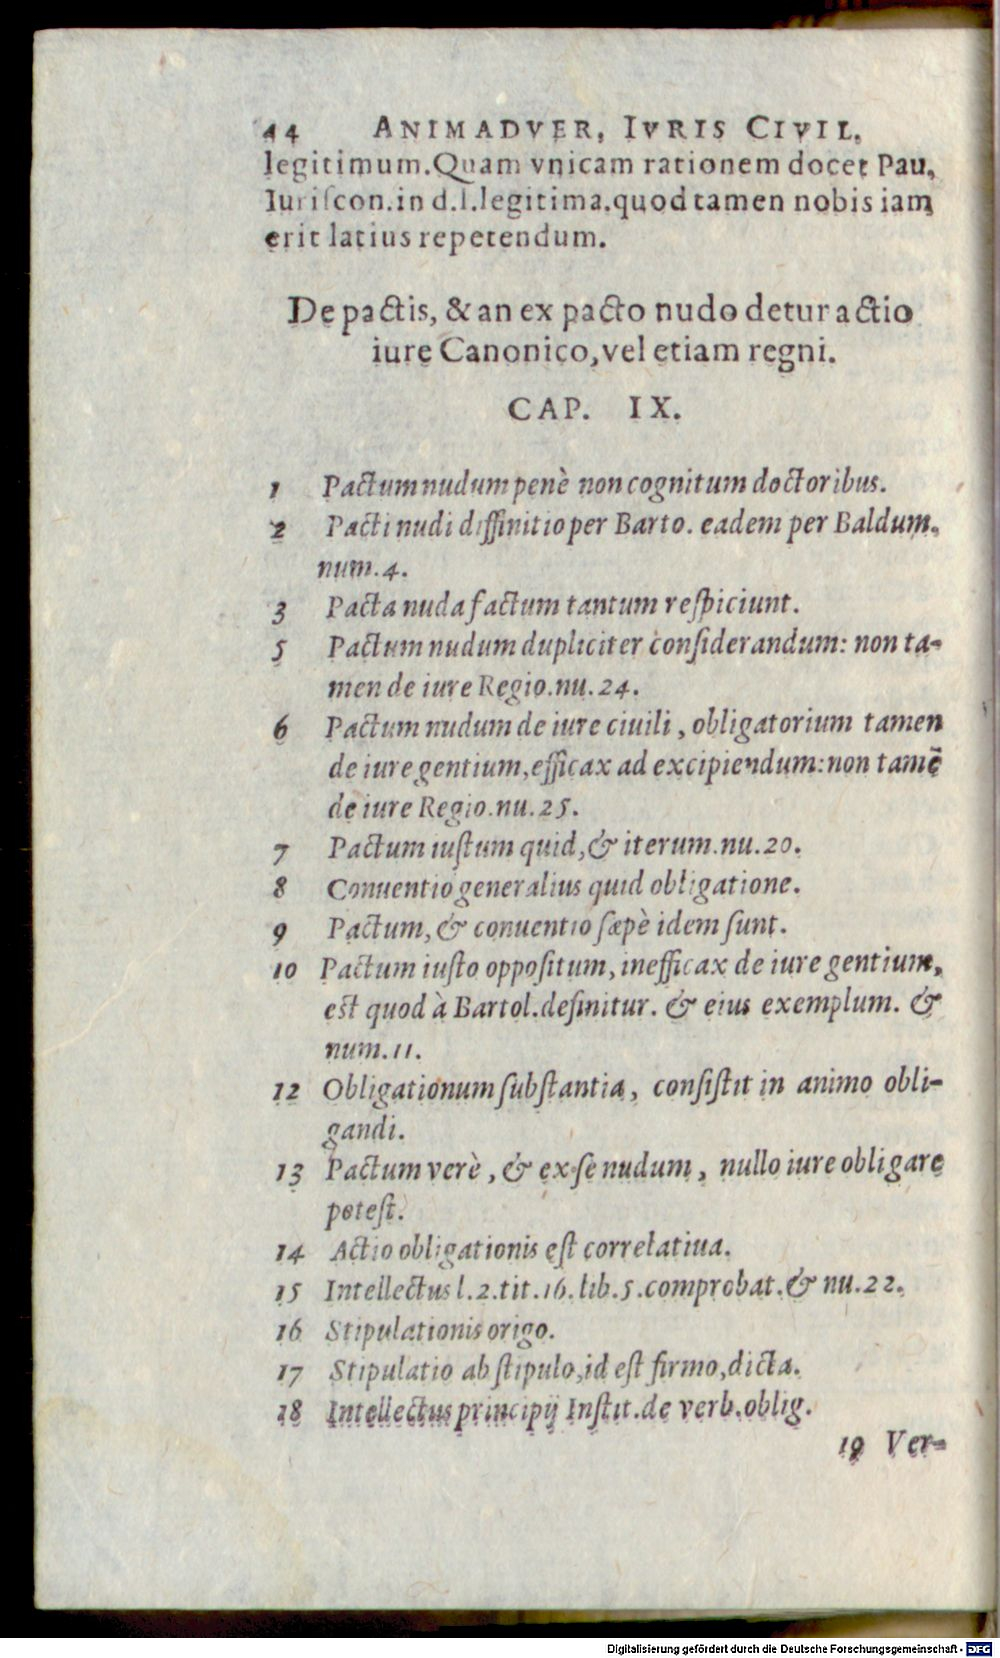 44 ANIMADVER, IVRIS CIVIL.
legitimum. Quam vnicam rationem docet Pau.
Iuriſcon. in d. l. legitima. quod tamen nobis iam
erit latius repetendum.
De pactis, & an ex pacto nudo detur actio
iure Canonico, vel etiam regni.
CAP. IX.
1 Pactum nudum penè non cognitum doctoribus.
2 Pacti nudi diffinitio per Barto. eadem per Baldum.
num. 4.
3 Pacta nuda factum tantum reſpiciunt.
5 Pactum nudum dupliciter conſiderandum: non ta-
men de iure Regio. nu. 24.
6 Pactum nudum de iure ciuili, obligatorium tamen
de iure gentium, efficax ad excipiendum: non tamẽ
de iure Regio. nu. 25.
7 Pactum iuſtum quid, & iterum. nu. 20.
8 Conuentio generalius quid obligatione.
9 Pactum, & conuentio ſæpè idem ſunt.
10 Pactum iuſto oppoſitum, inefficax de iure gentium,
eſt quod à Bartol. definitur. & eius exemplum. &
num. 11.
12 Obligationum ſubſtantia, conſiſtit in animo obli-
gandi.
13 Pactum verè, & ex ſe nudum, nullo iure obligare
poteſt.
14 Actio obligationis eſt correlatiua.
15 Intellectus l. 2. tit. 16. lib. 5. comprobat. & nu. 22.
16 Stipulationis origo.
17 Stipulatio ab ſtipulo, id eſt firmo, dicta.
18 Intellectus principij Inſtit. de verb. oblig.
19 Ver-
Digitalisierung gefördert durch die Deutsche Forschungsgemeinschaft - DFG